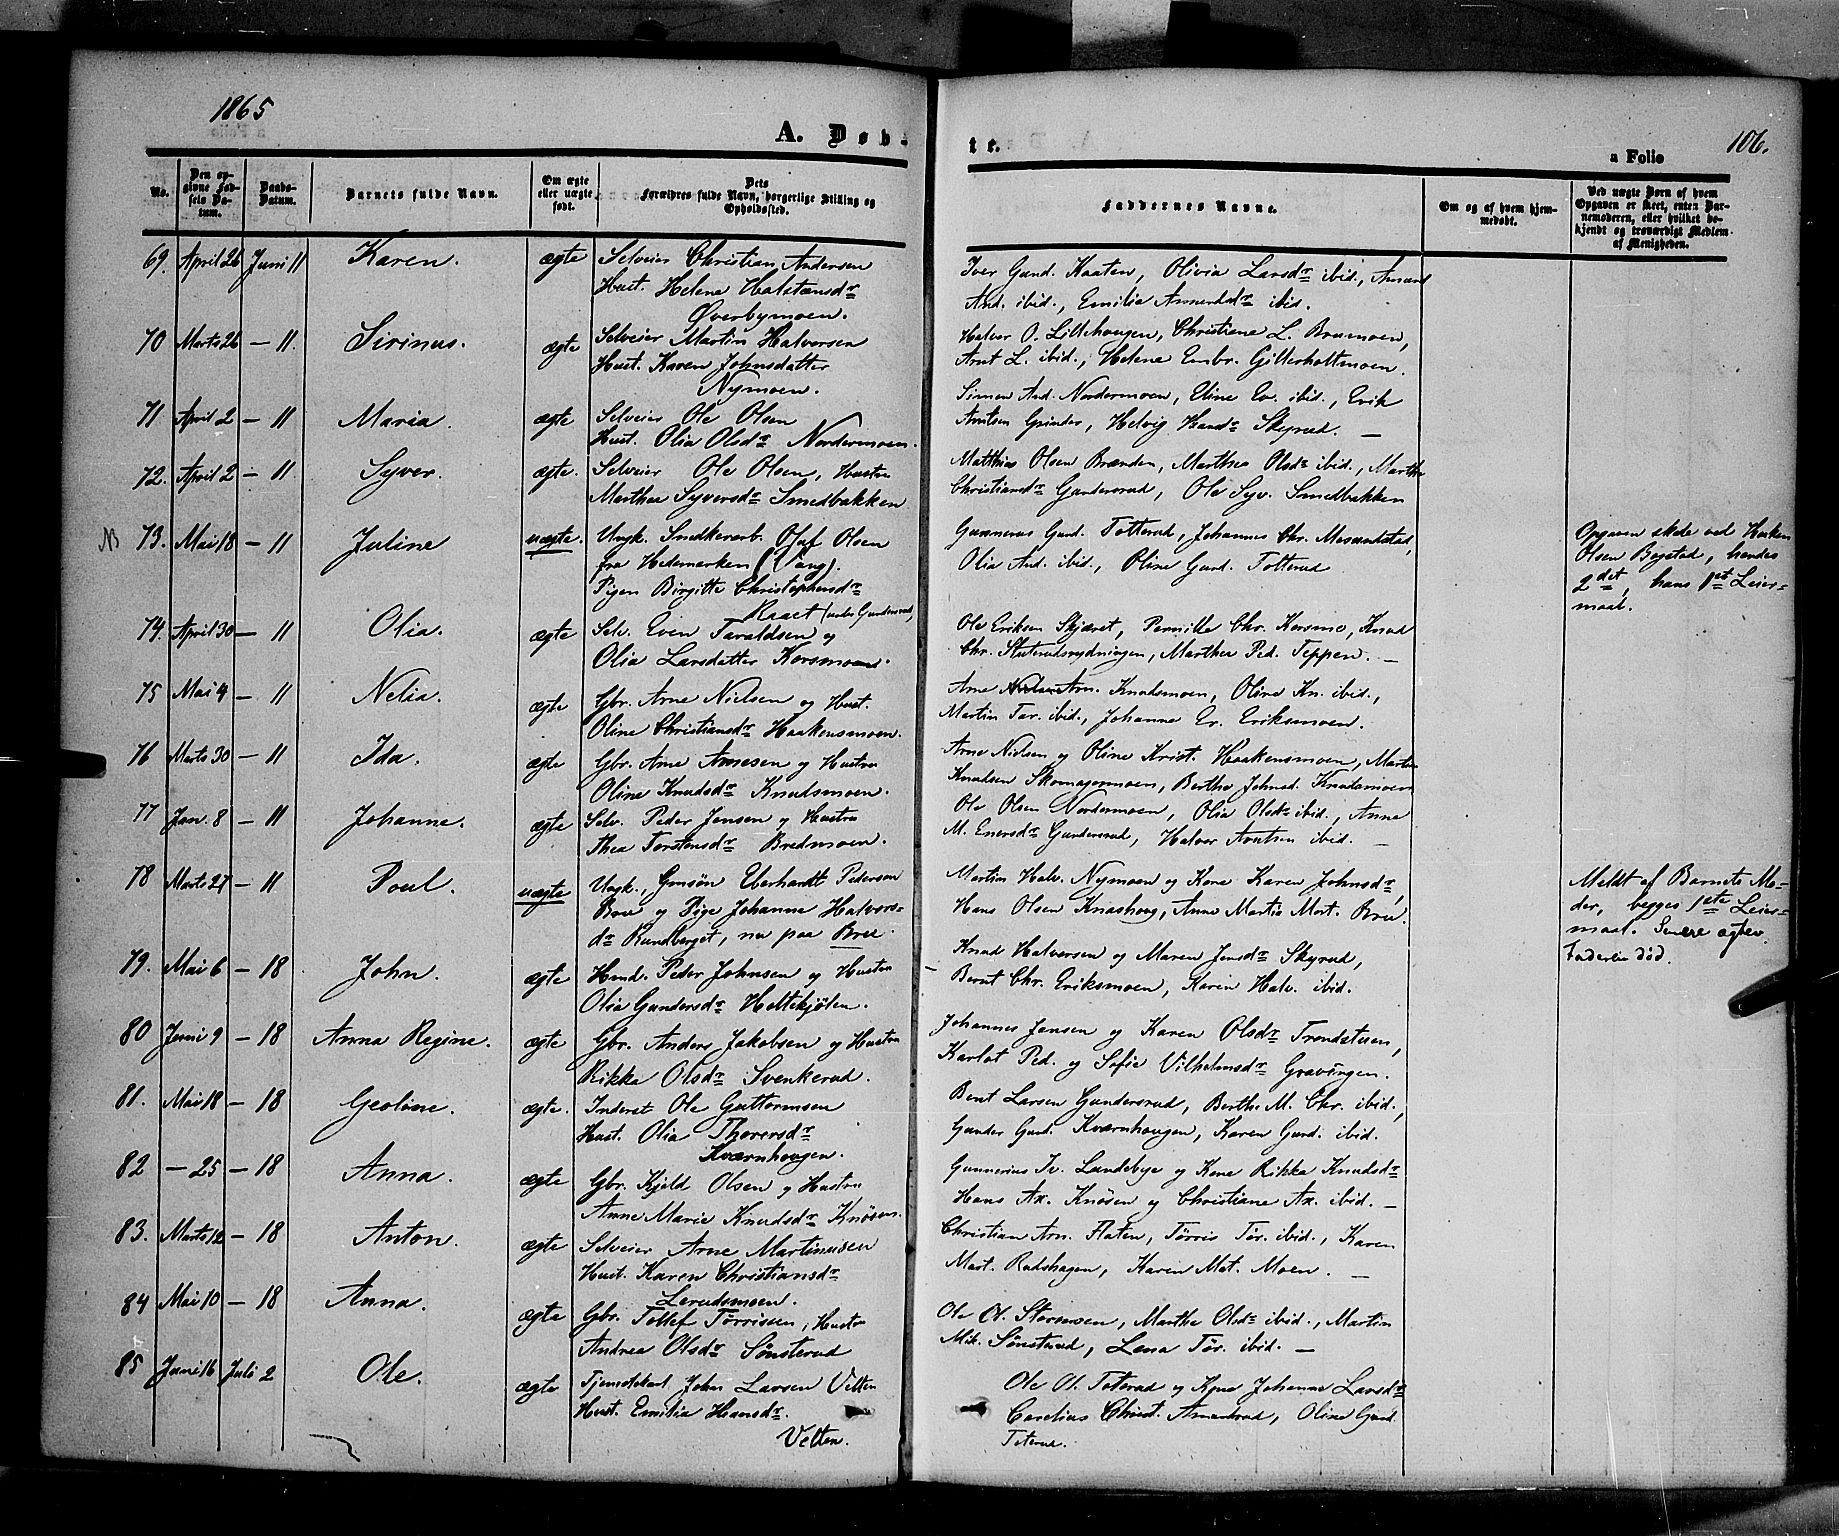 1865
A. Døb-
te.
106.
a Folio
No.
Den op-
givne Fød-
sels Da-
tum.
Daabs-
Datum.
Barnets fulde Navn.
Om ægte
eller uægte
født.
Dets
Forældres fulde Navn, borgerlige Stilling og
Opholdssted.
Faddernes Navne.
Om og af hvem hjem-
medøbt.
Ved uægte Børn af hvem
Opgaven er skeet, enten Bar-
nemoderen, eller hvilket be-
kjendt og troværdigt Medlem
af Menigheden.
69. April 26 Juni 11 Karen. ægte Selveier Christian Andersen
Hust. Helene Halstensdr
Øverbymoen.
Iver Gund. Kaaten, Olivia Larsdr ibid., Amund
And. ibid., Emilie Amundsdr ibid.
70 Marts 26 — 11. Sirinus. ægte Selveier Martin Halversen
Hust. Karen Johnsdatter
Nymoen.
Halver O. Lillehaugen, Christiane L. Brumoen,
Arnt L. ibid., Helene Embr. Gilterholtmoen.
71 April 2 — 11 Maria. ægte Selveier Ole Olsen
Hust. Olia Olsdr Nordermoen.
Simen And. Nordermoen, Eline Ev. ibid., Erik
Arntsen Grinder, Helvig Hansdr Skyrud. —
72. April 2 — 11 Syver. ægte. Selveier Ole Olsen, Hustru
Marthea Syversdr Smedbakken
Matthias Olsen Brænden, Marthea Olsdr ibid., Marthe
Christiansdr Gundersrud, Ole Syv. Smedbakken
NB 73. Mai 18 — 11 Juline uægte. Ungk. Snedkerarb. Olaf Olsen
fra Hedemarken (Vang).
Pigen Birgitte Christophersdr
Raaet (under Gundersrud)
Gunnerus Gund. Totterud, Johannes Chr. Mosundstad,
Olia And. ibid., Oline Gund. Totterud
Opgaven skede ved Haaken
Olsen Bogstad, hendes
2det, hans 1ste Leier-
maal.
74. April 30 — 11 Olia. ægte Selv. Even Taraldsen og
Olia Larsdatter Korsmoen.
Ole Eriksen Skjæret, Pernille Chr. Korsmo, Knud
Chr. Sluterudsrydningen, Marthea Ped. Teppen. —
75 Mai 4 — 11 Nelia. ægte Gbr. Arne Nielsen og Hust.
Oline Christiansdr Haakensmoen.
Arne Arn. Knudsmoen, Oline Kn. ibid.,
Martin Tar. ibid., Johanne Er. Eriksmoen.
76 Marts 30 — 11 Ida. ægte Gbr. Arne Arnesen og Hustru
Oline Knudsdr Knudsmoen.
Arne Nielsen og Oline Krist. Haakensmoen, Martin
Knudsen Skomagermoen, Berthe Johnsd. Knudsmoen
77 Jan. 8 — 11 Johanne. ægte Selv. Peder Jensen og Hustru
Thea Torstensdr Bredmoen.
Ole Olsen Nordermoen, Olia Olsdr ibid., Anne
M. Enersdr Gundersrud, Halver Arntsen ibid. —
78 Marts 27 — 11 Poul. uægte Ungk., Gmsøn Eberhardt Pedersen
Brue og Pige Johanne Halvors-
dr Rundberget, nu paa Brue.
Martin Halv. Nymoen og Kone Karen Johnsdr,
Hans Olsen Knashoug, Anne Martia Mart. Brue.
Meldt af Barnets Mo-
der, begges 1ste Leier-
maal. Senere ægtev.
Faderen død.
79. Mai 6 — 18 John. ægte Hmd. Peder Johnsen og Hustru
Olia Gundersdr Heltekjølen.
Knud Halversen og Maren Jensdr Skyrud,
Bernt Chr. Eriksmoen, Karin Halv. ibid.
80 Juni 9 — 18 Anna Regine. ægte Gbr. Anders Jakobsen og Hustru
Rikka Olsdr Svenkerud.
Johannes Jansen og Karen Olsdr Trondstuen,
Karlot Ped. og Sofie Vilhelmsdr Gravingen.
81. Mai 18 — 18 Geoline. ægte. Inderst Ole Guttormsen
Hust. Olia Thorersdr
Kværnhougen.
Bernt Larsen Gundersrud, Berthe M. Chr. ibid.,
Gunder Gund. Kværnhougen, Karen Gund. ibid.
82 — 25 — 18 Anna. ægte Gbr. Kjeld Olsen og Hustru
Anne Marie Knudsdr Knøsen.
Gunnerius Iv. Lundebye og Kone Rikka Knudsdr
Hans Ax. Knøsen og Christiane Ax. ibid. —
83. Marts 12 — 18 Anton. ægte Selveier Arne Martinusen
Hust. Karen Christiansdr
Lerudsmoen.
Christian Arn. Flaten, Tørris Tør. ibid., Karen
Mart. Rudshagen, Karin Mat. Moen. —
84 Mai 10 — 18 Anna. ægte Gbr. Tollef Tørrisen, Hustru
Andrea Olsdr Sønsterud
Ole O. Storsveen, Marthe Olsdr ibid., Martin
Mik. Sønsterud, Lena Tør. ibid. —
85 Juni 16 Juli 2 Ole. ægte Tjenstekarl John Larsen Velten
Hust. Emilia Hansdr.
Velten.
Ole O. Toterud og Kone Johanne Larsdr
Carelius Christ. Amundrud, Oline Gund.
Toterud.